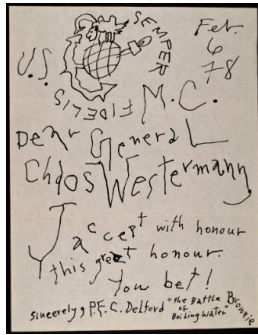 SEMPER
FIDELIS
Feb.
6
78
U.S. M.C.
Dear General
Chaos Westermann,
I accept with honour
this great honour.
You bet!
Sincerely, P.F.C. Delford "the Battle Brownie
of
Boiling Water"